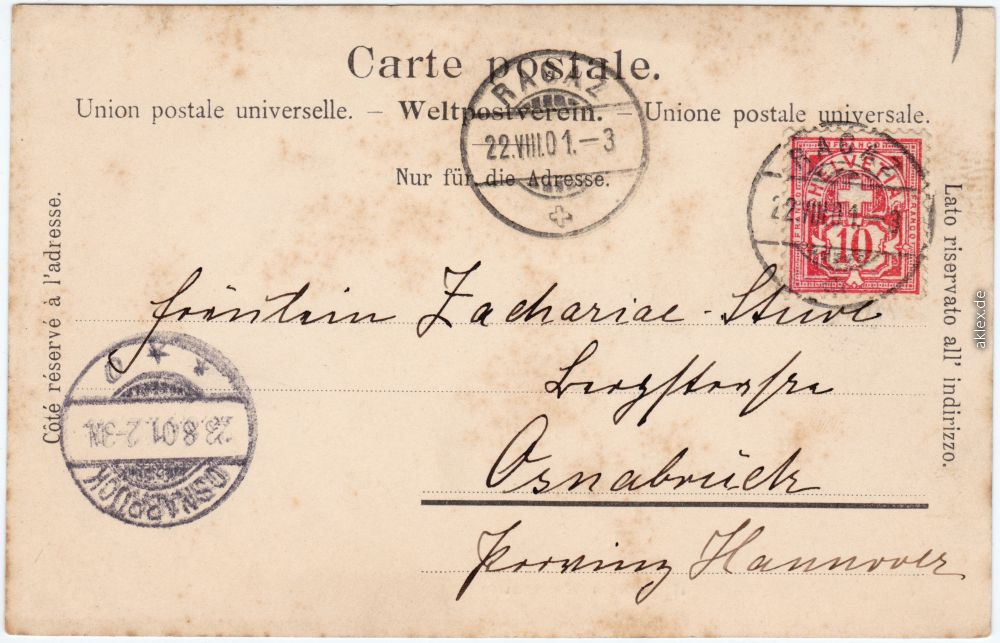 Carte postale.
Union postale universelle. – Weltpostverein. – Unione postale universale.
Nur für die Adresse.
RAGAZ
22.VIII.01.–3
RAGAZ
22.VIII.01.–3
HELVETIA
FRANCO
FRANCO
10
Côté réservé à l'adresse.
Lato riservato all' indirizzo.
Fräulein Zachariae-Stüve
Bergstraße
Osnabrück
Provinz Hannover
OSNABRÜCK
23.8.01.2-3N.
aklex.de